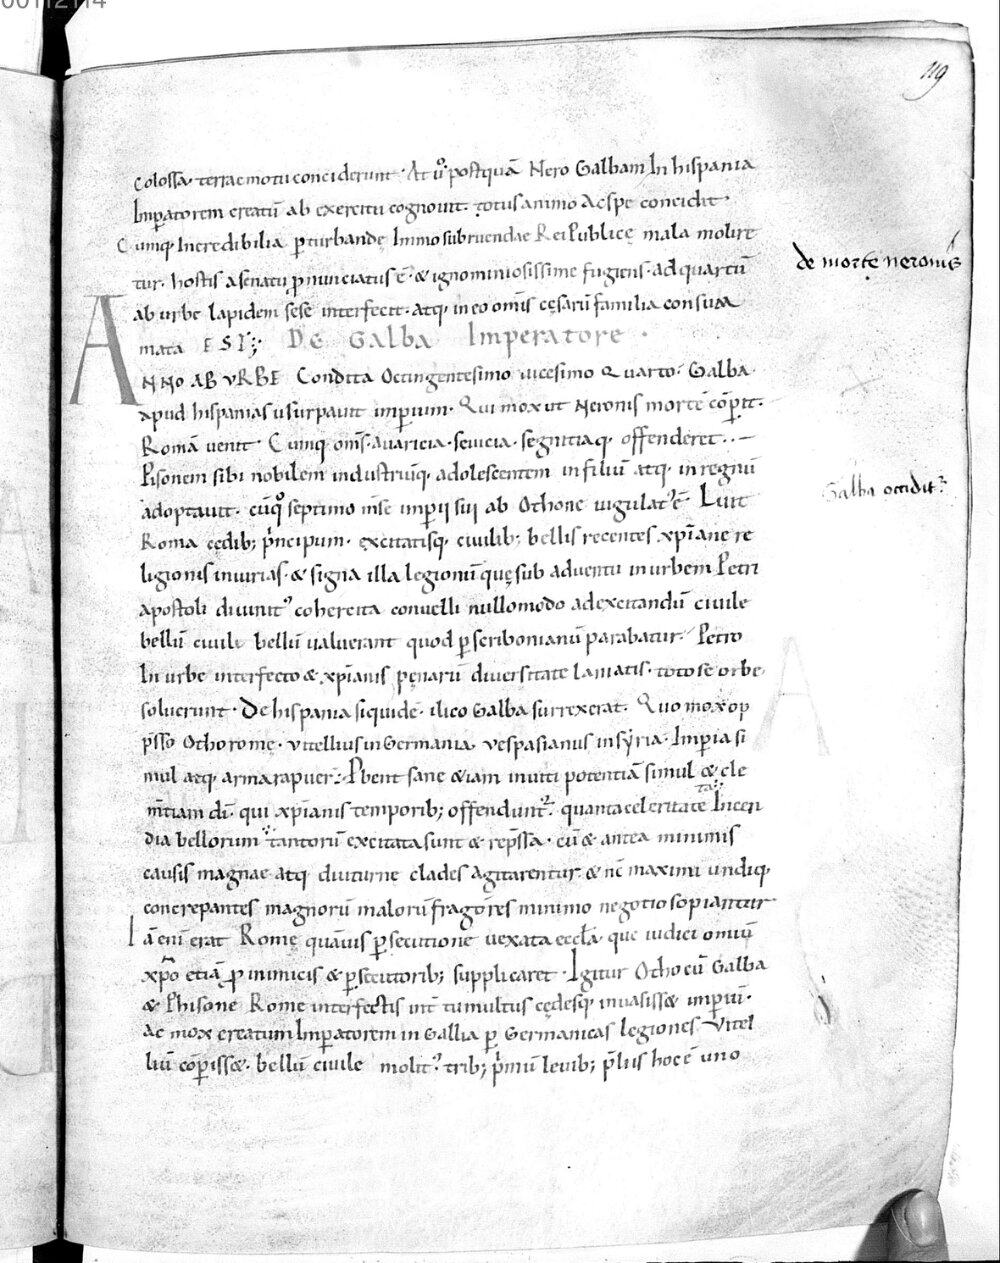 00112114
119
colossa · terrae motu conciderunt · At ũ postquã Nero Galbam In hispania
Imperatorem creatũ ab exercitu cognouit · totus animo Ac spe concidit ·
Cumq; Incredibilia p̱turbandę Immo subruendae Rei Publicę mala molire
tur · hostis a senatu p̱nunciatus ē · & ignominiosissime fugiens · ad quartũ
ab urbe lapidem sese interfecit · atq; in eo omīs cęsarũ familia consum
mata EST;
DE Galba Imperatore ·
de morte neronis
ANNO AB URBE Condita Octingentesimo uicesimo Quarto · Galba
apud hispanias usurpauit imp̱ium · Qui mox ut Neronis mortē cōp̱it ·
Romã uenit · Cumq; oms̄ · auaricia · seuicia · segnitiaq; offenderet · · —
Pisonem sibi nobilem industriũq; adolescentem in filiũ atq; in regnũ
adoptauit · cũq̊ septimo mse imp̱ii sui ab Othone iugulat' ē · Luit
Galba occidit'
Roma cedib; p̍ncipum · excitatisq; ciuilib; bellis recentes xp̄iane re
ligionis iniurias · & signa illa legionũ quę sub aduentu in urbem Petri
apostoli diuinit' coherceita conuelli nullo modo ad excitandũ ciuile
bellũ ciuile bellũ ualuerant quod p̱ scribonianũ parabatur · Petro
In urbe interfecto & xp̄ianis pęnarũ diuersitate laniatis · toto se orbe
soluerunt · De hispania siquidē · ilico Galba surrexerat · Quo mox op
p̄sso Otho rome · uitellius in Germania · uespasianus in syria · Imp̱ia si
mul atq; arma rapuer̄ · P̱bent sane &iam inuiti potentiã simul & cle
mtiam dī · qui xp̄ianis temporib; offendunt' · quanta celeritate Incen
dia bellorum tantorũ excitata sunt & rep̄ssa · cũ & antea minimis
causis magnae atq; diuturne clades agitarentur · & nc̄ maximi undiq;
concrepantes magnorũ malorũ fragores minimo negotio sopiantur
Iã enī erat Romę quãuis p̱secutione uexata eccl̄a · que iudici omiũ
xp̄o etiã p̱ inimicis & p̱secutorib; supplicaret · Igitur Otho cũ Galba
& Phisone Rome interfectis int̄ tumultus cędesq; inuasiss& imp̱iũ ·
Ac mox creatum Imp̱atorem in Gallia p̱ Germanicas legiones Vitel
liũ cōp̱iss& · bellũ ciuile molit' · trib; p̍mũ leuib; p̄liis hoc ē uno